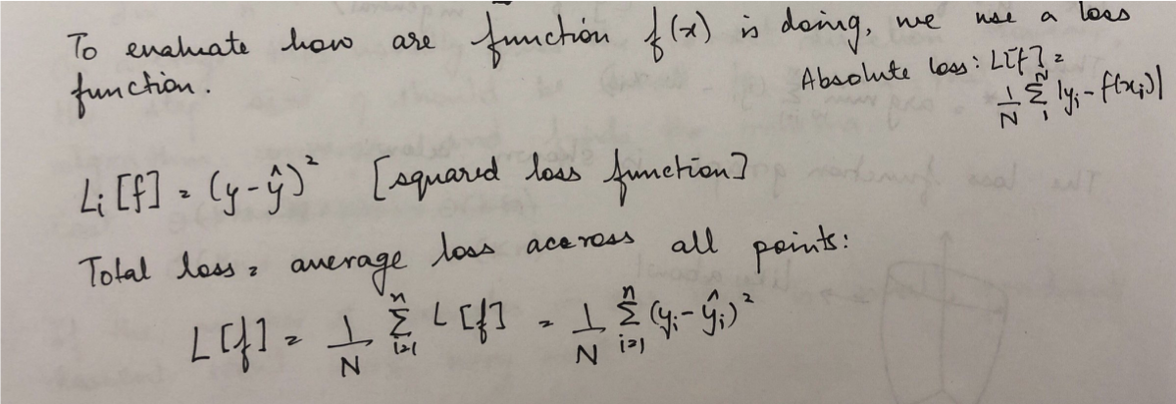 To evaluate how are function f(x) is doing, we use a loss
function.
Absolute loss: L[f] =
1/N Σ_1^N |y_i - f(x_i)|
L_i [f] = (y - ŷ)² [squared loss function]
Total loss = average loss accross all points:
L[f] = 1/N Σ_{i=1}^n L[f] = 1/N Σ_{i=1}^n (y_i - ŷ_i)²